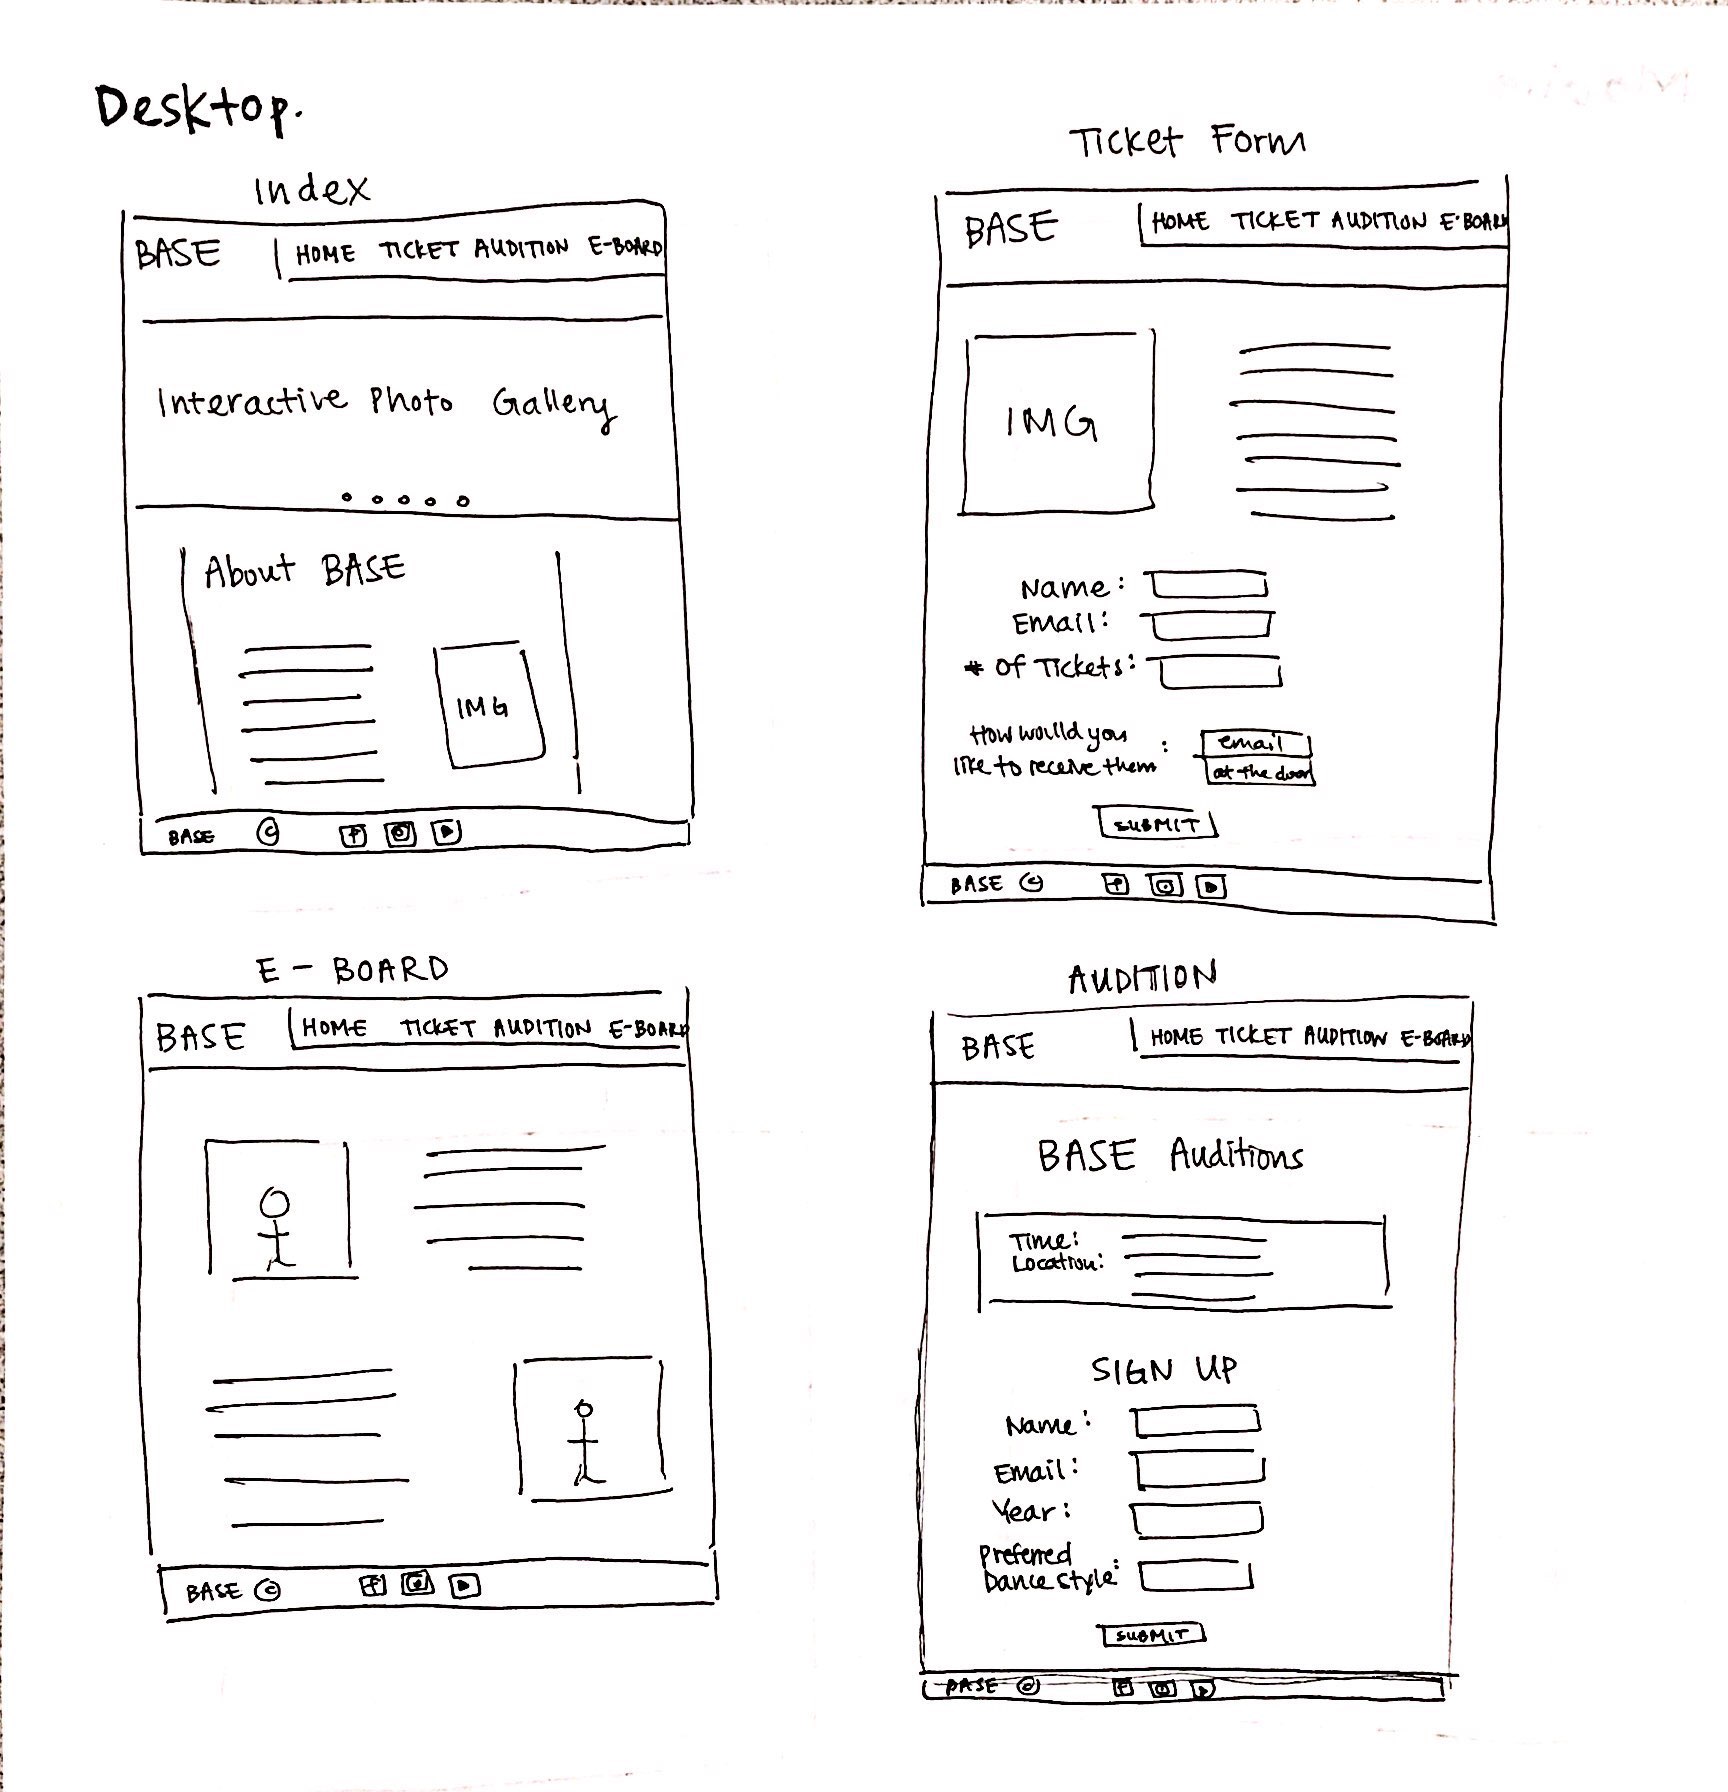 Desktop.
Index
BASE
HOME TICKET AUDITION E-BOARD
Interactive Photo Gallery
About BASE
IMG
BASE ©
Ticket Form
BASE
HOME TICKET AUDITION E-BOARD
IMG
Name:
Email:
# of Tickets:
How would you
like to receive them :
email
at the door
SUBMIT
BASE ©
E - BOARD
BASE
HOME TICKET AUDITION E-BOARD
BASE ©
AUDITION
BASE
HOME TICKET AUDITION E-BOARD
BASE Auditions
Time:
Location:
SIGN UP
Name:
Email:
Year:
Preferred
Dance style:
SUBMIT
BASE ©